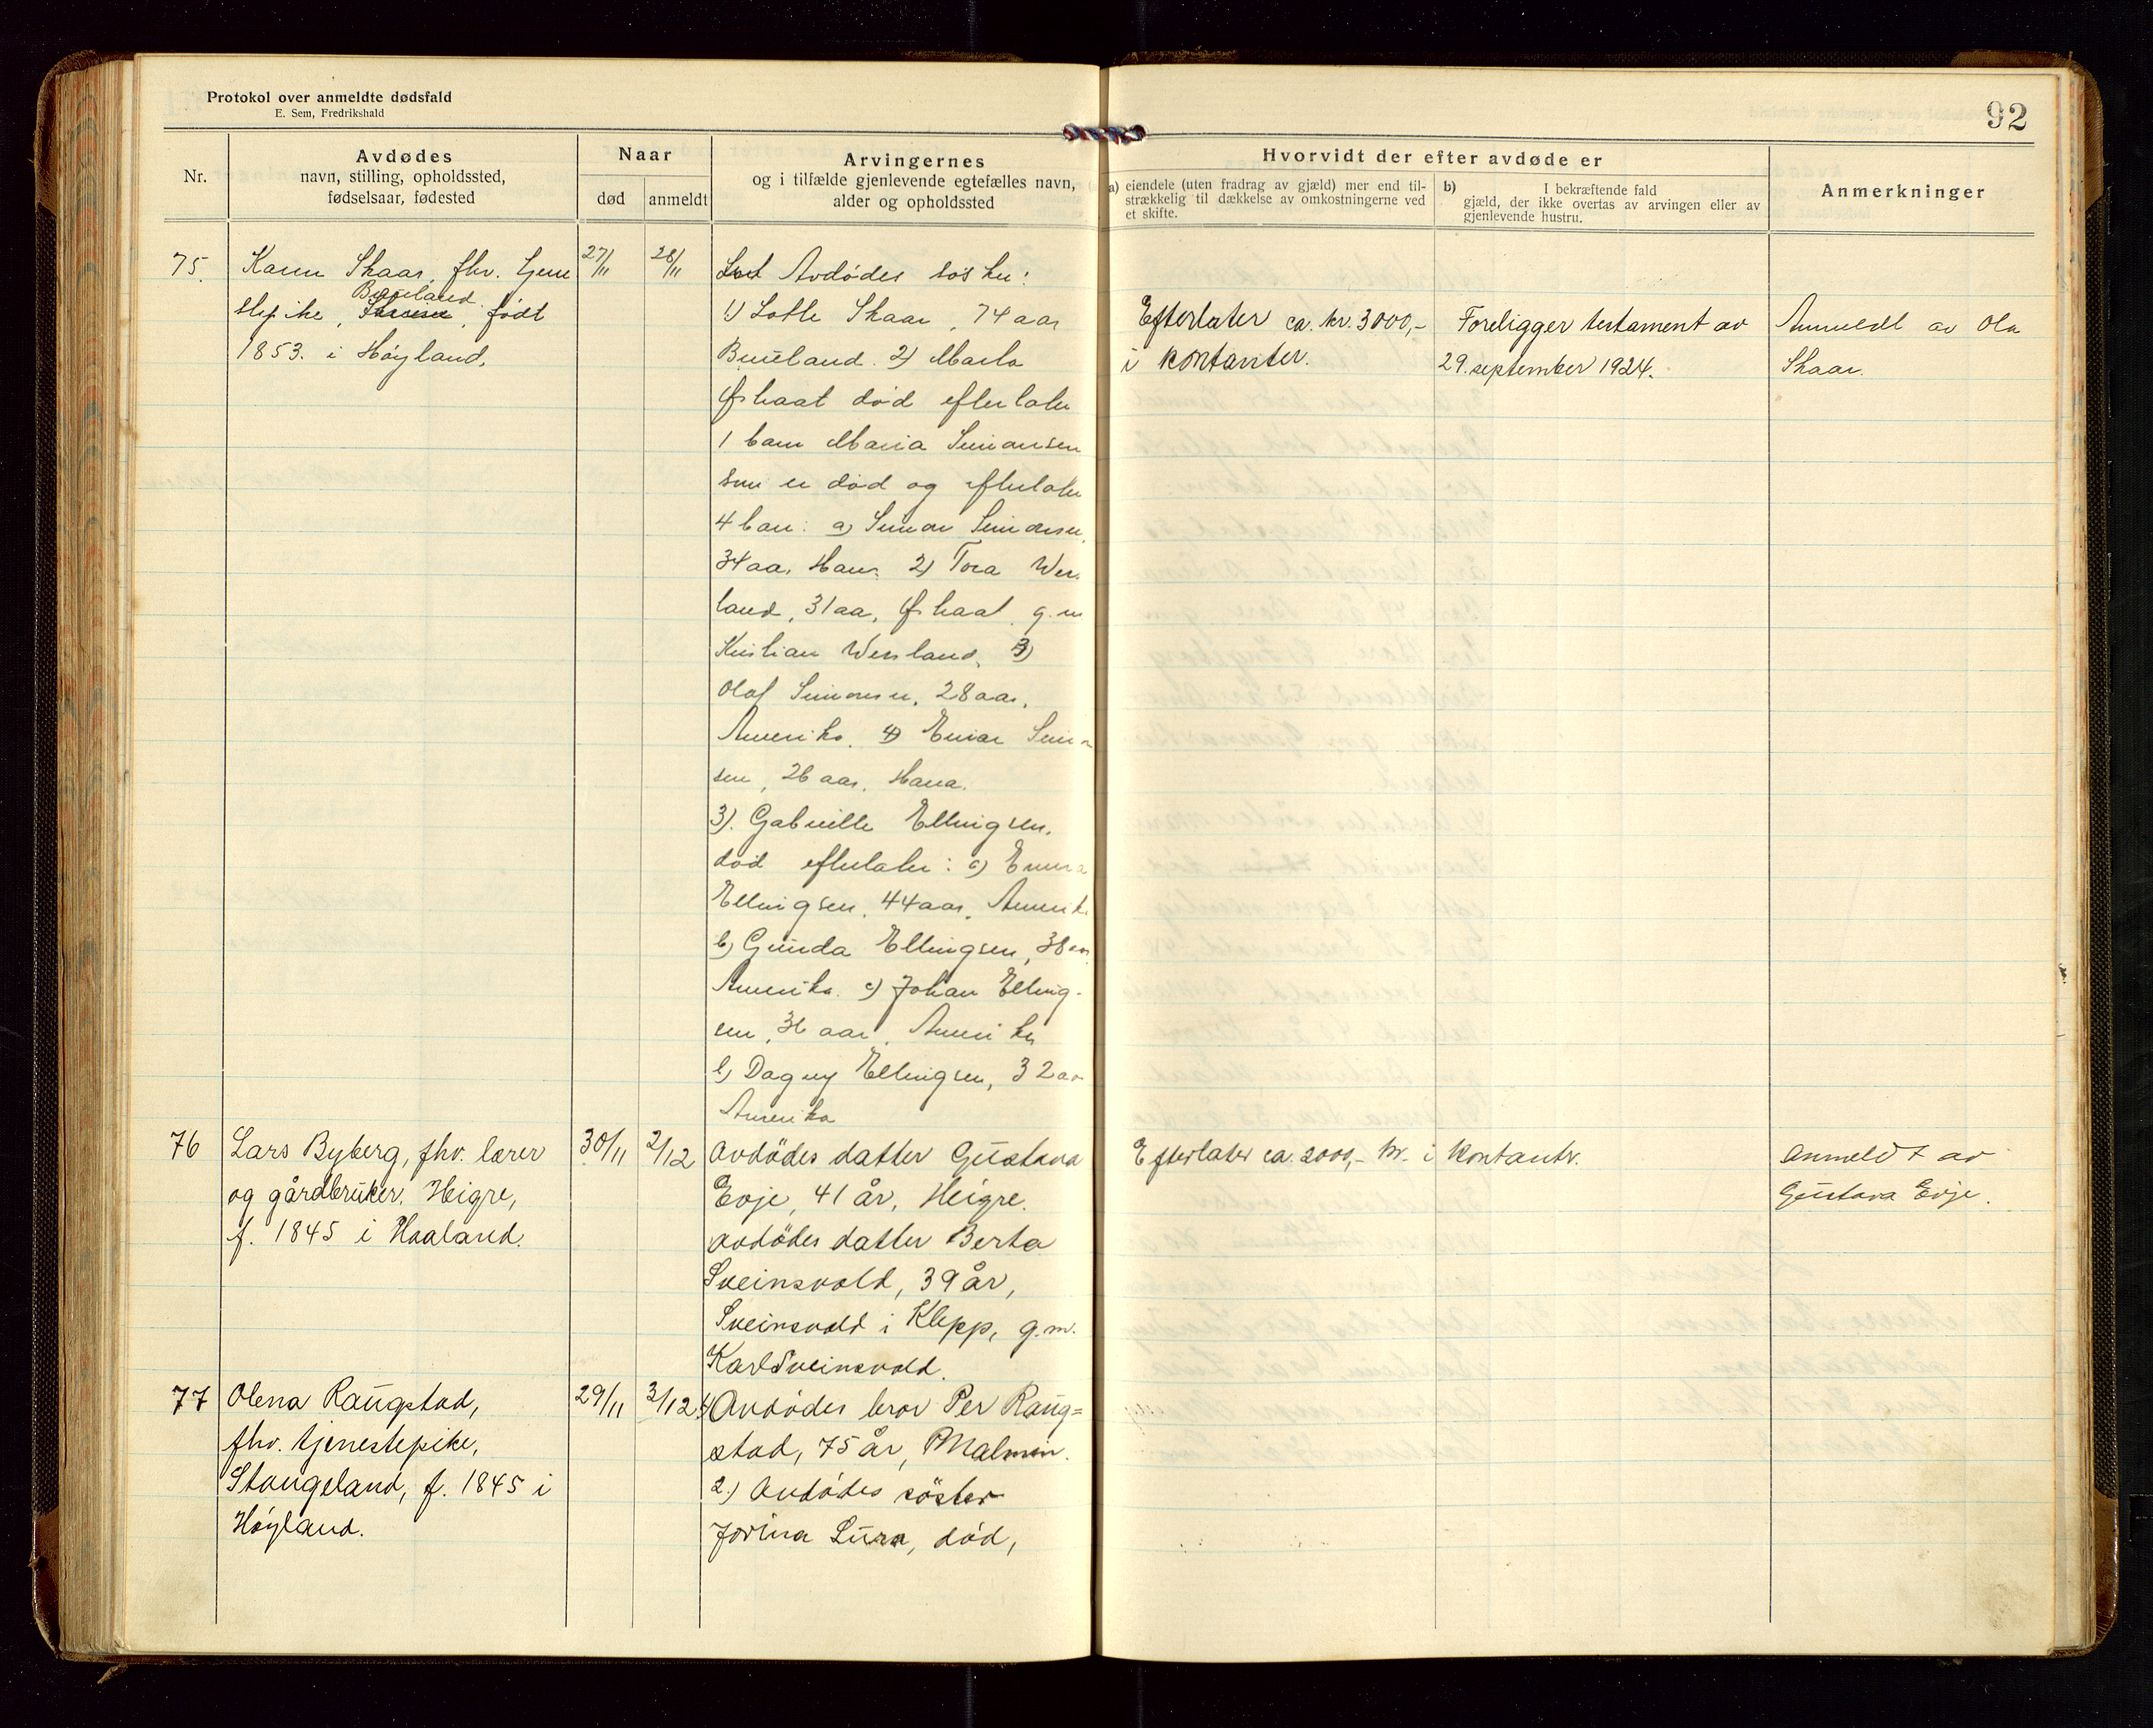 Protokol over anmeldte dødsfald
E. Sem, Fredrikshald
92
Nr.
Avdødes
navn, stilling, opholdssted,
fødselsaar, fødested
Naar
død
anmeldt
Arvingernes
og i tilfælde gjenlevende egtefælles navn,
alder og opholdssted
Hvorvidt der efter avdøde er
a) eiendele (uten fradrag av gjæld) mer end til-
strækkelig til dækkelse av omkostningerne ved
et skifte.
b) I bekræftende fald
gjæld, der ikke overtas av arvingen eller av
gjenlevende hustru.
Anmerkninger
75.
Karen Skaar, fhv. tjene
Bueland
stepike, født
1853. i Høyland.
27/11
28/11
Avdødes søsken:
1) Lotte Skaar, 74 aar
Bueland. 2) Marta
død efterlater
1 barn Maria Simonsen
som er død og efterlater
4 barn: a) Simon Simonsen,
34 aar, Hana. 2) Tora Wers
land, 31 aar, g.m
Kristian Wersland, 3)
Olaf Simonsen, 28 aar,
Amerika. 4) Einar Simon
sen, 26 aar, Hana.
3). Gabrielle Ellingsen,
død efterlater: a) Emma
Ellingsen, 44 aar, Amerika
b) Gunda Ellingsen, 38 aar
Amerika. c) Johan Elling-
sen, 36 aar, Amerika
Dagny Ellingsen, 32 aar
Amerika
Efterlater ca. kr. 3000,-
i kontanter.
Foreligger testament av
29. september 1924.
Anmeldt av Ola
Skaar.
76
Lars Byberg, fhv. lærer
og gårdbruker, Heigre,
f. 1845 i Haaland.
30/11
2/12
Avdödes datter Gustava
Evje, 41 år, Heigre.
avdödes datter Berta
Sveinsvold, 39 år,
Sveinsvold i Klepp, g.m.
Karl Sveinsvold.
Efterlater ca. 2000,- kr. i kontantr.
anmeldt av
Gustava Evje.
77
Olena Raugstad,
fhv. tjenestepike,
Stangeland, f. 1845 i
Høyland.
29/11
3/12
1) Avdødes bror Per Raug=
stad, 75 år, Malmin.
2.) Avdødes søster
Jorina Lura, død,